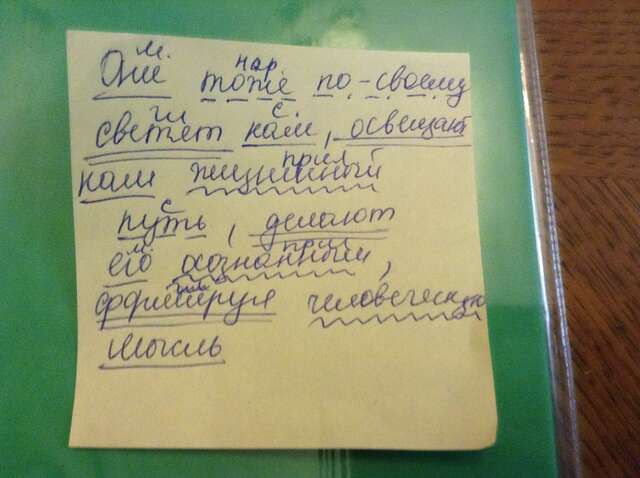 м. нар
Они тоже по-своему
гл с.
светят нам, освещают
прил
нам жизненный
с
путь, делают
м. прил
его осознанным,
формируя человеческую
мысль